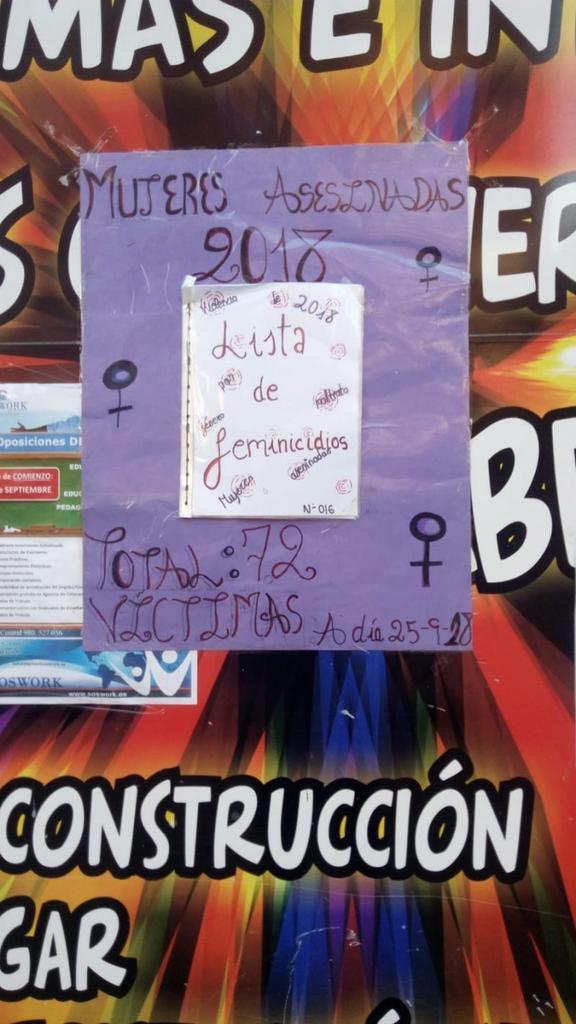 MAS E IN
MUJERES ASESINADAS
2018
Violencia de 2018
Lista
por maltrato
de
género
feminicidios
Mujeres asesinadas
Nº 016
TOTAL: 72
VÍCTIMAS A día 25-9-18
ER
WORK
Oposiciones DE
a de COMIENZO:
e SEPTIEMBRE
EDU
EDUC
PEDAG
Control 980. 527.056
OSWORK
www.soswork.es
AB
CONSTRUCCIÓN
GAR